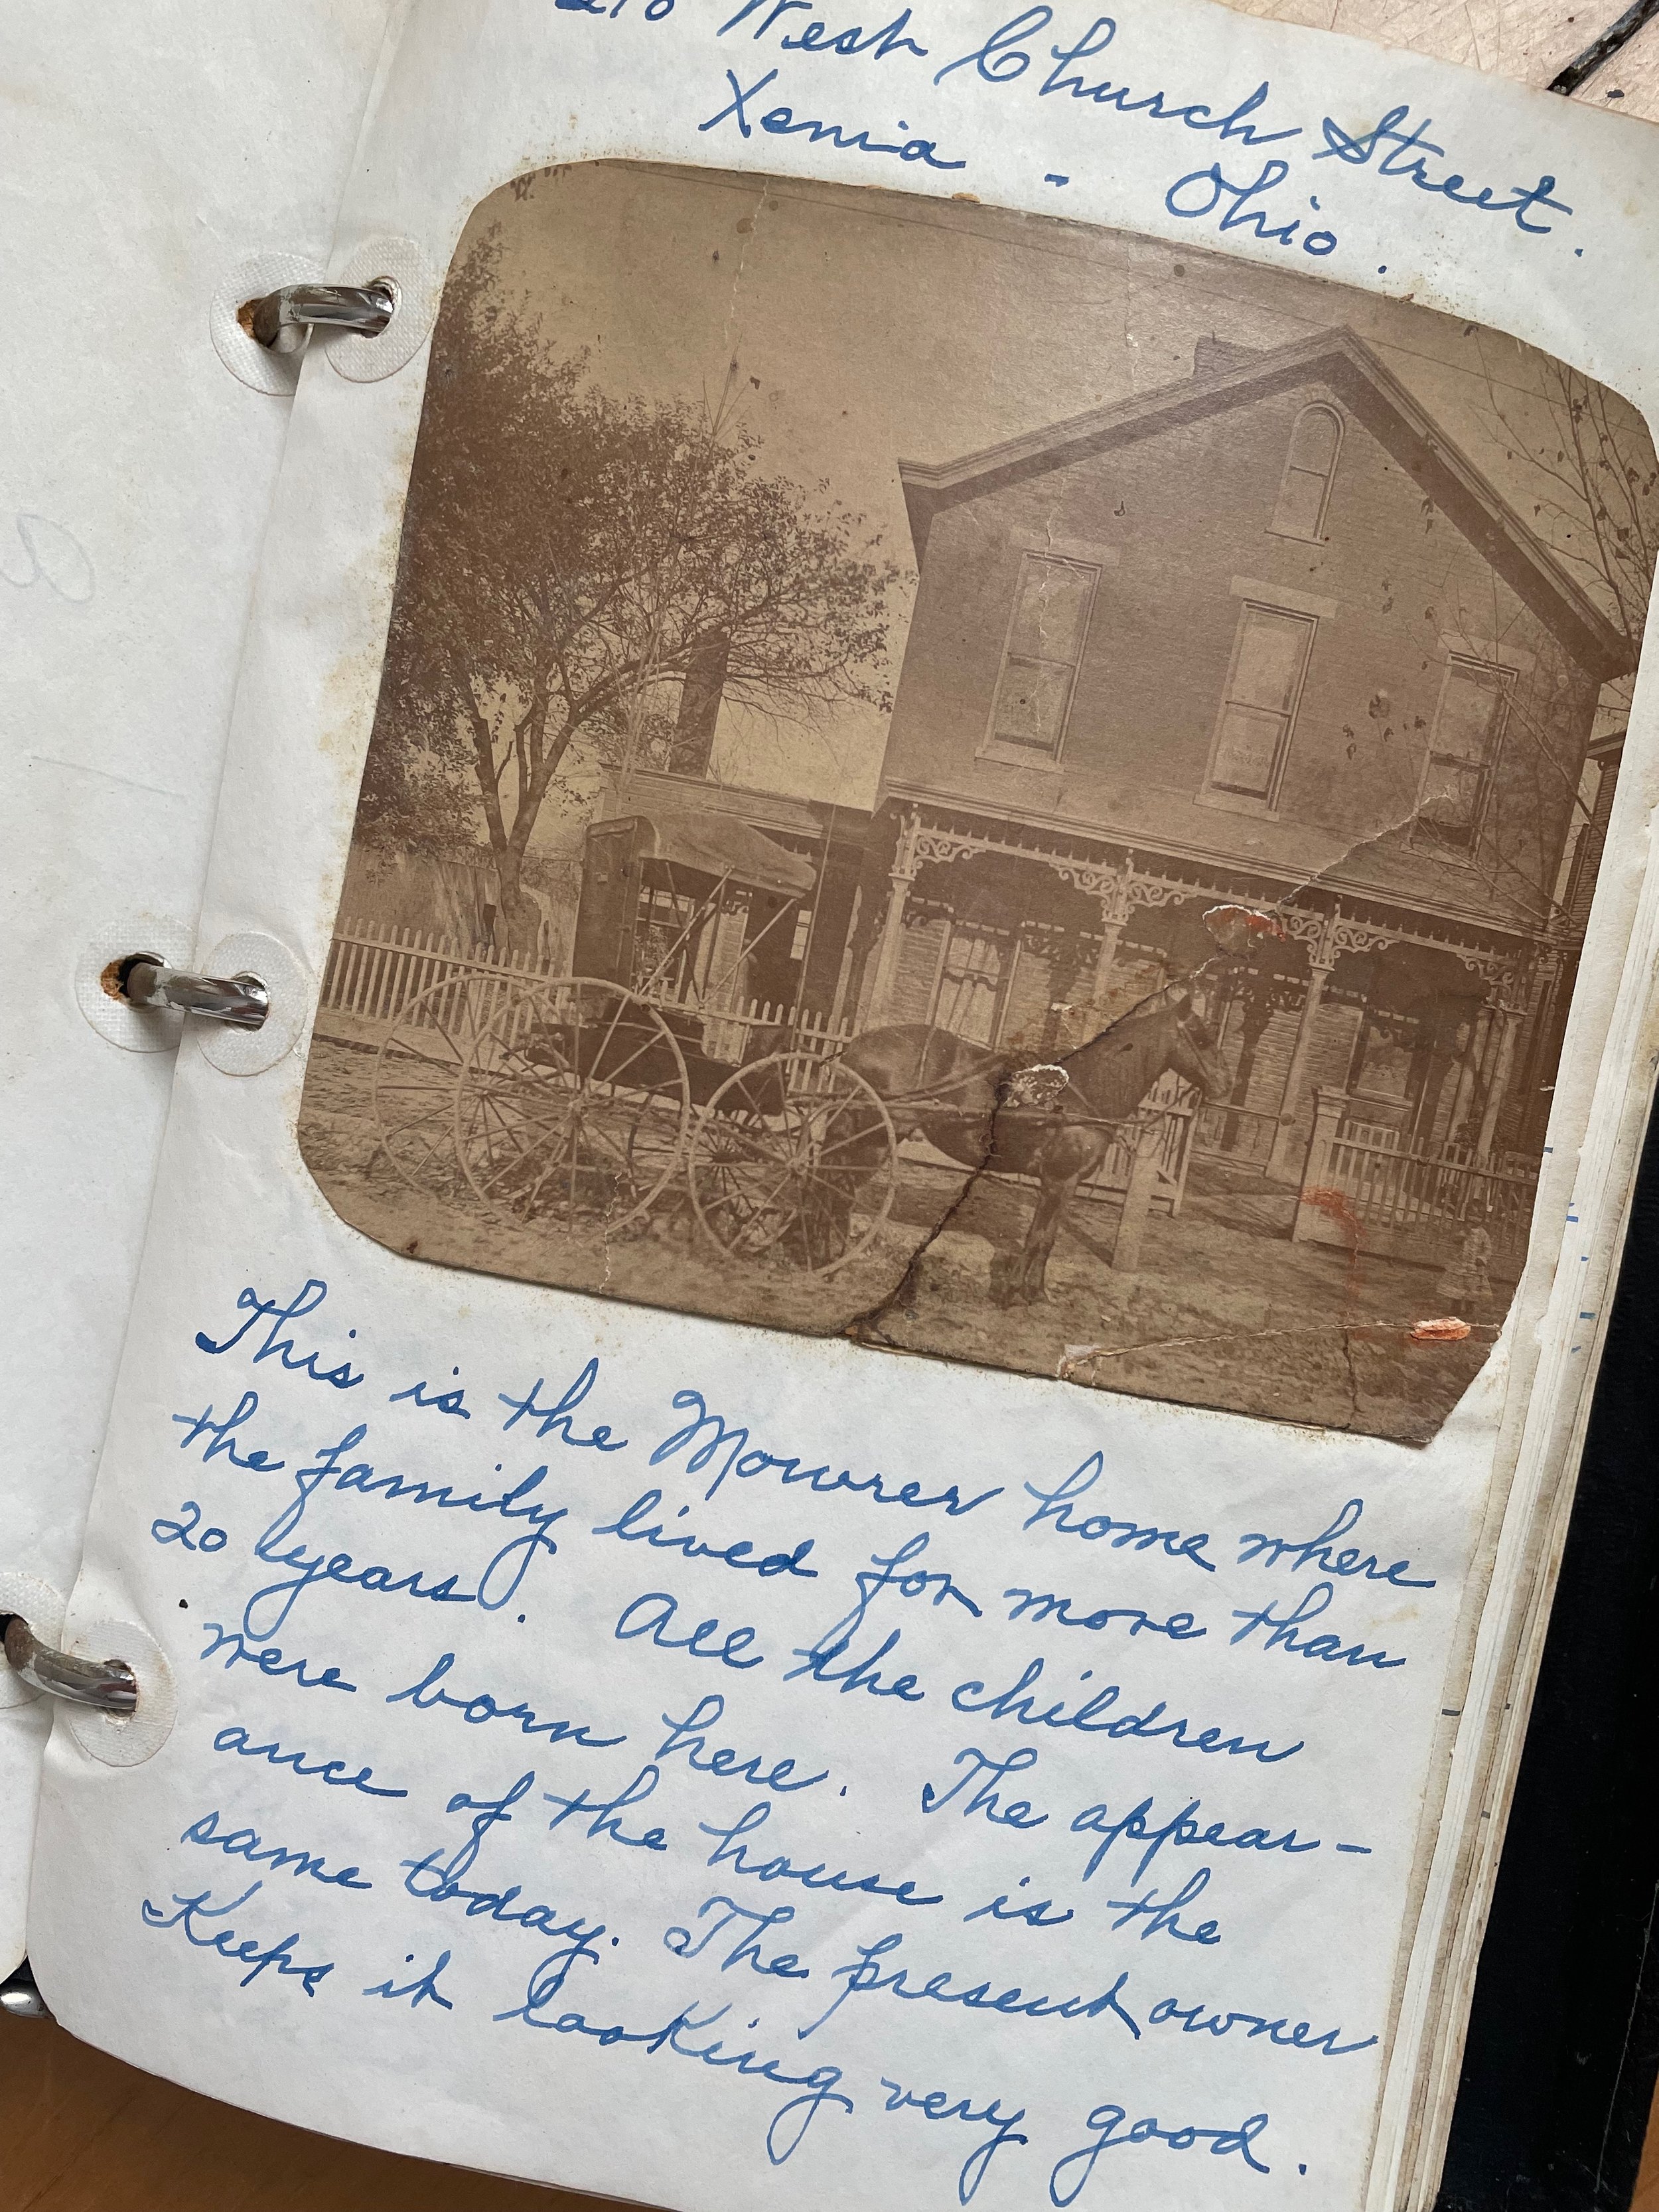 West Church Street.
Xenia - Ohio.
This is the Mowrer home where
the family lived for more than
20 years. All the children
were born here. The appear-
ance of the house is the
same today. The present owner
Keeps it looking very good.